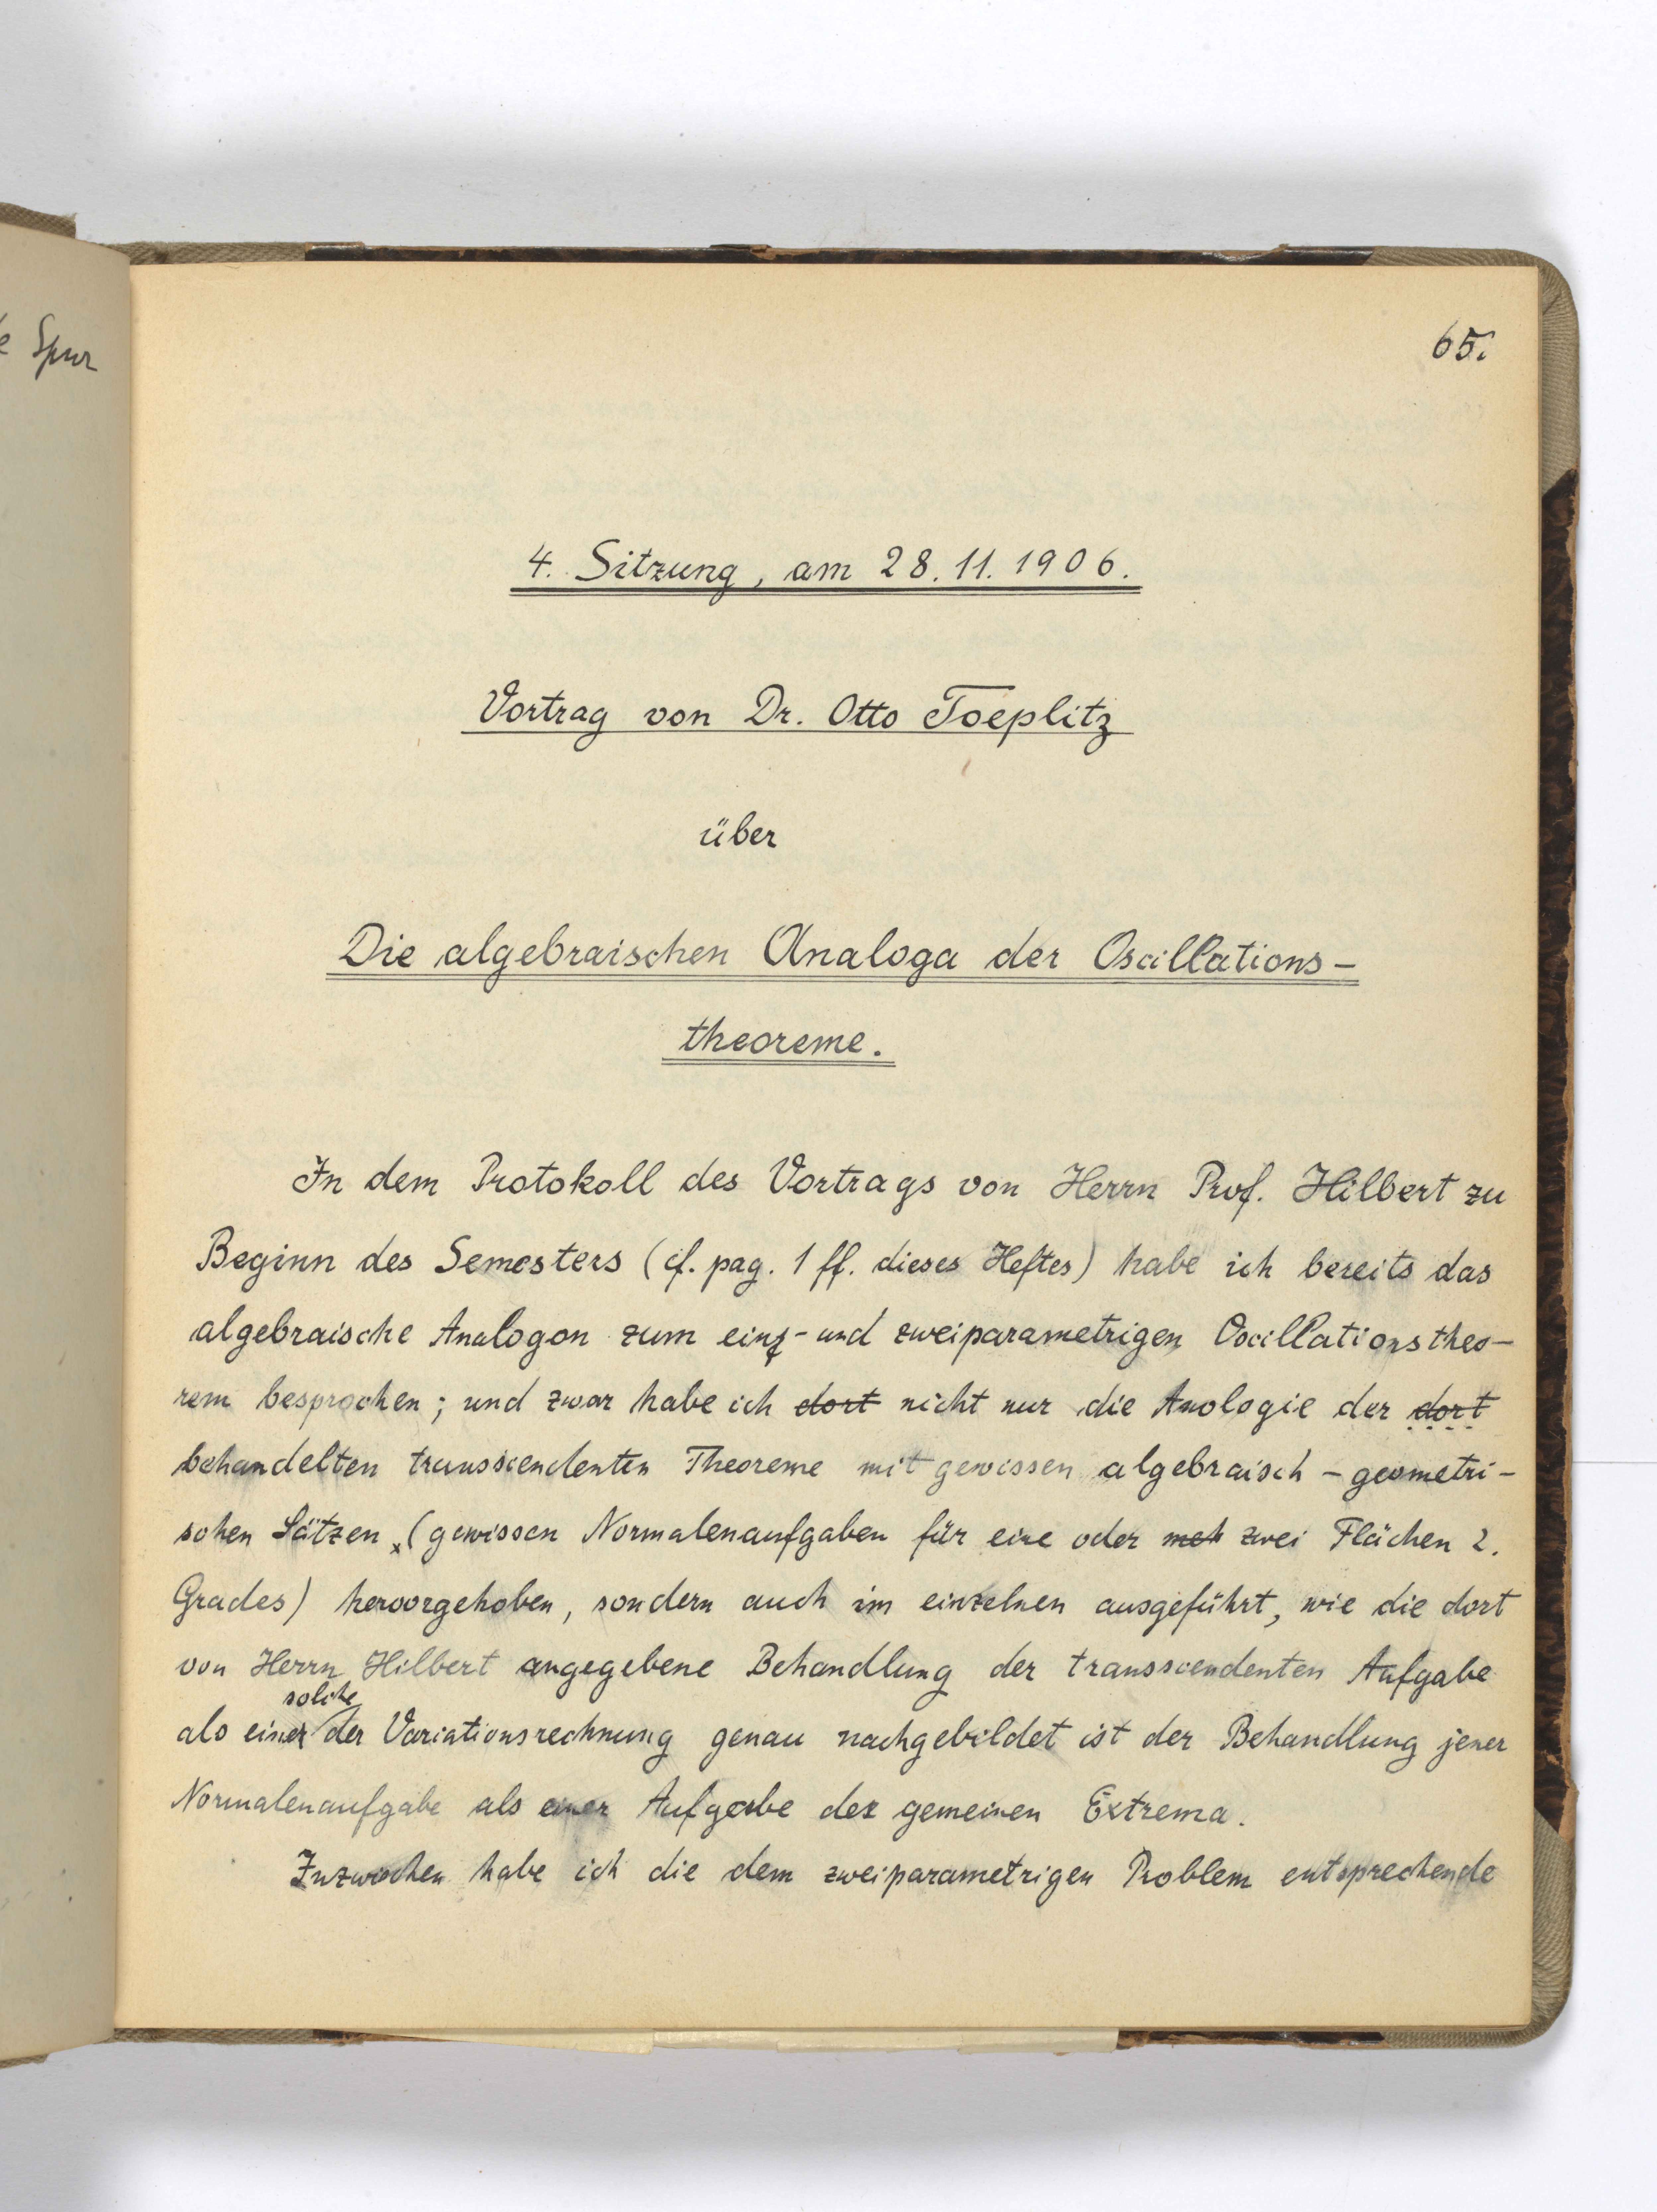 Spur
65.
4. Sitzung, am 28. 11. 1906.
Vortrag von Dr. Otto Toeplitz
über
Die algebraischen Analoga der Oscillations-
theoreme.
In dem Protokoll des Vortrags von Herrn Prof. Hilbert zu
Beginn des Semesters (cf. pag. 1 ff. dieses Heftes) habe ich bereits das
algebraische Analogon zum ein- und zweiparametrigen Oscillationstheo-
rem besprochen; und zwar habe ich dort nicht nur die Analogie der dort
behandelten transscendenten Theoreme mit gewissen algebraisch-geometri-
schen Sätzen (gewissen Normalenaufgaben für eine oder meh zwei Flächen 2.
Grades) hervorgehoben, sondern auch im einzelnen ausgeführt, wie die dort
von Herrn Hilbert angegebene Behandlung der transscendenten Aufgabe
solche
als einer der Variationsrechnung genau nachgebildet ist der Behandlung jener
Normalenaufgabe als einer Aufgabe der gemeinen Extrema.
Inzwischen habe ich die dem zweiparametrigen Problem entsprechende